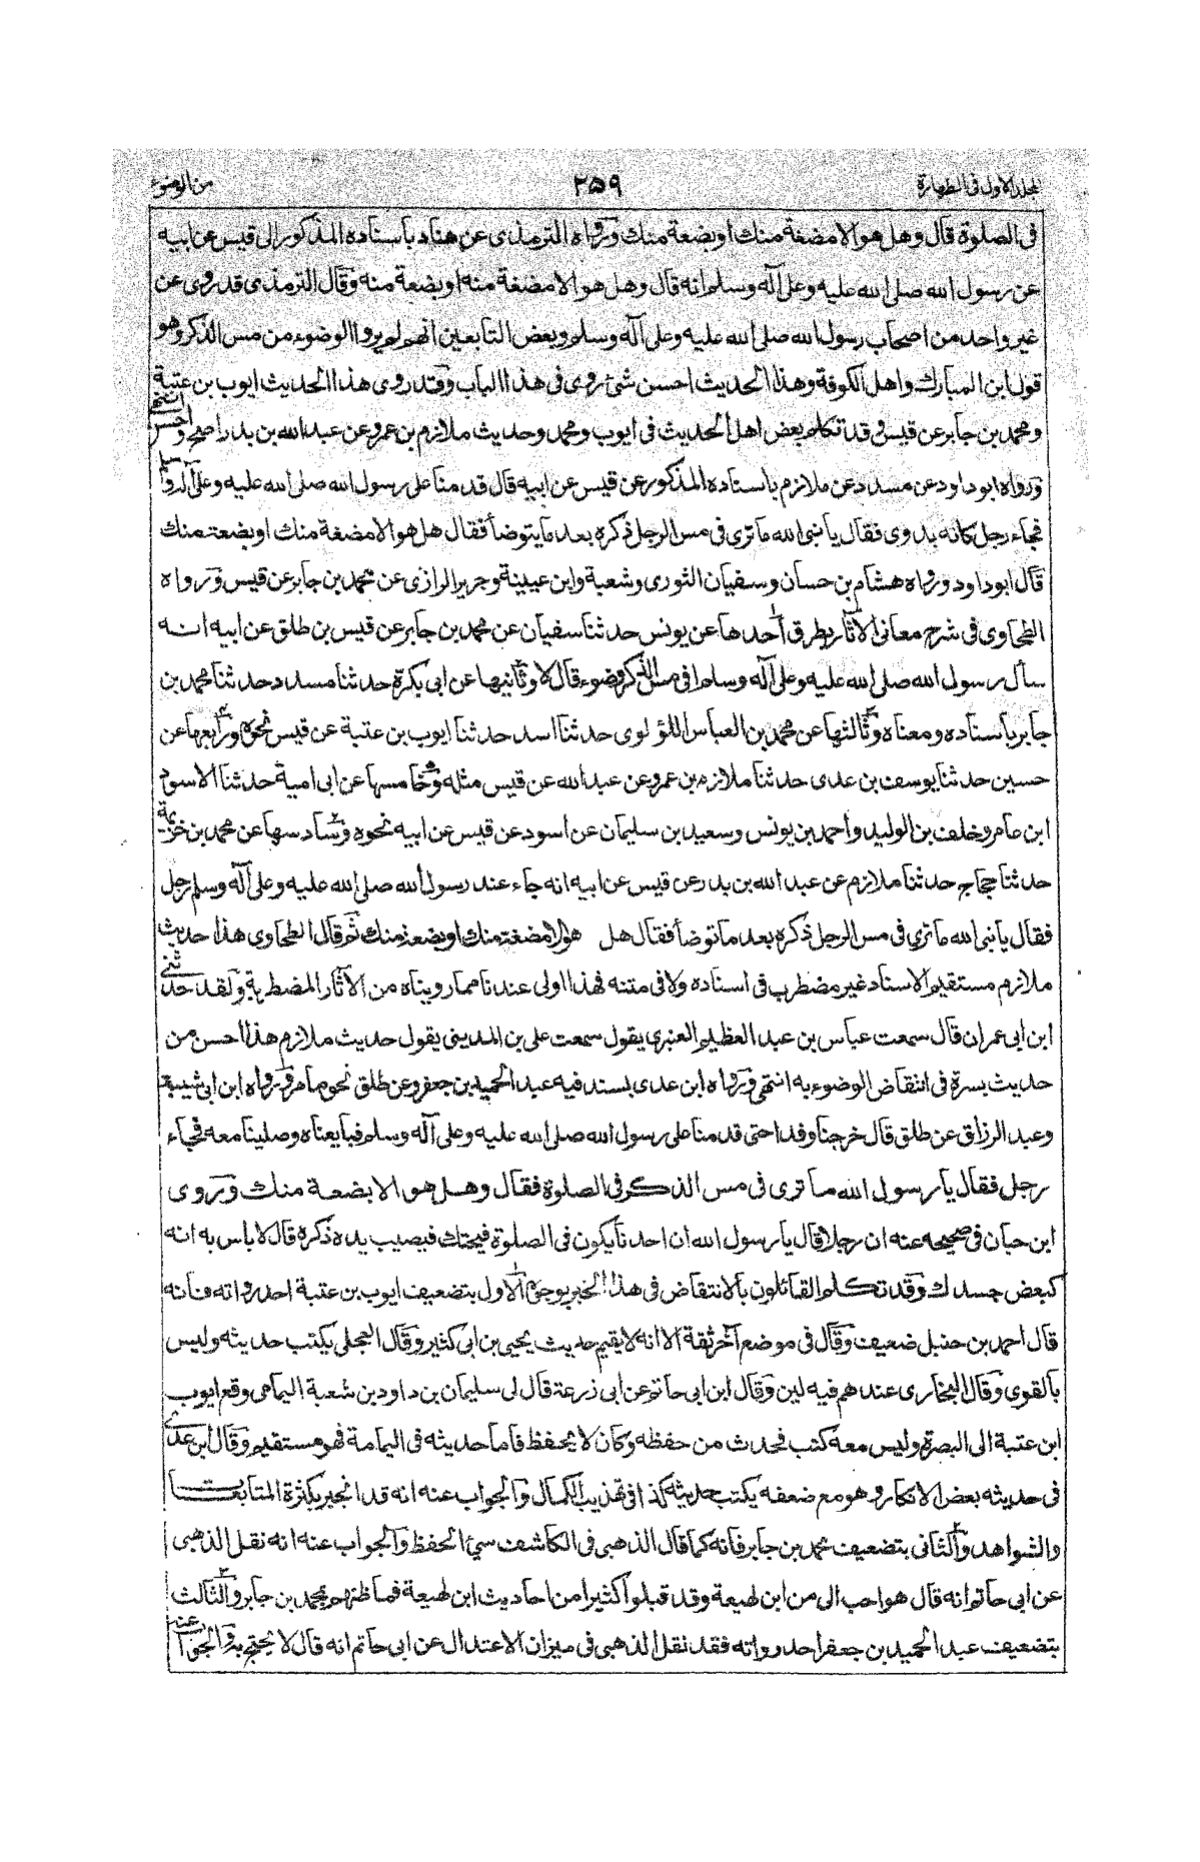 المجلد الاول فى الطهارة ٢٥٩ من الوضوء
فى الصلوة قال وهل هو الا مضغة منك او بضعة منك ورواه الترمذى عن هناد باسناده المذكور الى قيس عن ابيه
عن رسول الله صلى الله عليه وعلى آله وسلم انه قال وهل هو الا مضغة منه او بضعة منه وقال الترمذى قد روى عن
غير واحد من اصحاب رسول الله صلى الله عليه وعلى آله وسلم وبعض التابعين انهم لم يروا الوضوء من مس الذكر وهو
قول ابن المبارك واهل الكوفة وهذا الحديث احسن شئ روى فى هذا الباب وقد روى هذا الحديث ايوب بن عتبة
ومحمد بن جابر عن قيس وقد تكلم بعض اهل الحديث فى ايوب ومحمد وحديث ملازم بن عمرو عن عبد الله بن بدر اصح واحسن انتهى
ورواه ابو داود عن مسدد عن ملازم باسناده المذكور عن قيس عن ابيه قال قدمنا على رسول الله صلى الله عليه وعلى آله وسلم
فجاء رجل كانه بدوى فقال يا نبى الله ما ترى فى مس الرجل ذكره بعد ما يتوضأ فقال هل هو الا مضغة منك او بضعة منك
قال ابو داود ورواه هشام بن حسان وسفيان الثورى وشعبة وابن عيينة وجرير الرازى عن محمد بن جابر عن قيس ورواه
الطحاوى فى شرح معانى الآثار بطرق احدها عن يونس حدثنا سفيان عن محمد بن جابر عن قيس بن طلق عن ابيه انه
سأل رسول الله صلى الله عليه وعلى آله وسلم افى مس الذكر وضوء قال لا وثانيها عن ابى بكرة حدثنا مسدد حدثنا محمد بن
جابر باسناده ومعناه وثالثها عن محمد بن العباس اللؤلوى حدثنا اسد حدثنا ايوب بن عتبة عن قيس نحوه ورابعها عن
حسين حدثنا يوسف بن عدى حدثنا ملازم بن عمرو عن عبد الله عن قيس مثله وخامسها عن ابى امية حدثنا الاسود
ابن عامر وخلف بن الوليد واحمد بن يونس وسعيد بن سليمان عن اسود عن قيس عن ابيه نحوه وسادسها عن محمد بن خزيمة
حدثنا حجاج حدثنا ملازم عن عبد الله بن بدر عن قيس عن ابيه انه جاء عند رسول الله صلى الله عليه وعلى آله وسلم رجل
فقال يا نبى الله ما ترى فى مس الرجل ذكره بعد ما توضأ فقال هل هو الا مضغة منك او بضعة منك ثم قال الطحاوى هذا حديث
ملازم مستقيم الاسناد غير مضطرب فى اسناده ولا فى متنه فهذا اولى عندنا مما رويناه من الآثار المضطربة ولقد حدثنى
ابن ابى عمران قال سمعت عباس بن عبد العظيم العنبرى يقول سمعت على بن المدينى يقول حديث ملازم هذا احسن من
حديث بسرة فى انتقاض الوضوء به انتهى ورواه ابن عدى بسند فيه عبد الحميد بن جعفر وعن طلق نحو ما مر ورواه ابن ابى شيبة
وعبد الرزاق عن طلق قال خرجنا وفدا حتى قدمنا على رسول الله صلى الله عليه وعلى آله وسلم فبايعناه وصلينا معه فجاء
رجل فقال يا رسول الله ما ترى فى مس الذكر فى الصلوة فقال وهل هو الا بضعة منك وروى
ابن حبان فى صحيحه عنه ان رجلا قال يا رسول الله ان احدنا يكون فى الصلوة فيحتك فيصيب يده ذكره قال لا باس به انه
كبعض جسدك وقد تكلم القائلون بالانتقاض فى هذا الخبر بوجوه الاول بتضعيف ايوب بن عتبة احد رواته فانه
قال احمد بن حنبل ضعيف وقال فى موضع آخر ثقة الا انه لا يقيم حديث يحيى بن ابى كثير وقال العجلى يكتب حديثه وليس
بالقوى وقال البخارى عندهم فيه لين وقال ابن ابى حاتم عن ابى زرعة قال لى سليمان بن داود بن شعبة اليمامى وقع ايوب
ابن عتبة الى البصرة وليس معه كتب فحدث من حفظه وكان لا يحفظ فاما حديثه فى اليمامة فهو مستقيم وقال ابن عدى
فى حديثه بعض الانكار وهو مع ضعفه يكتب حديثه كذا فى تهذيب الكمال والجواب عنه انه قد انجبر بكثرة المتابعات
والشواهد والثانى بتضعيف محمد بن جابر فانه كما قال الذهبى فى الكاشف سئ الحفظ والجواب عنه انه نقل الذهبى
عن ابى حاتم انه قال هو احب الى من ابن لهيعة وقد قبلوا كثيرا من احاديث ابن لهيعة فما ظنهم بمحمد بن جابر والثالث
بتضعيف عبد الحميد بن جعفر احد رواته فقد نقل الذهبى فى ميزان الاعتدال عن ابى حاتم انه قال لا يحتج به والجواب عنه